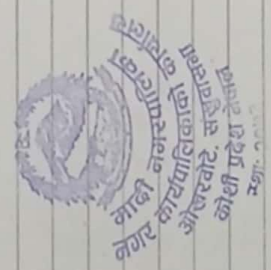 मादी नगरपालिका
नगर कार्यपालिकाको कार्यालय
ओखरबोटे, संखुवासभा
कोशी प्रदेश नेपाल
स्था.